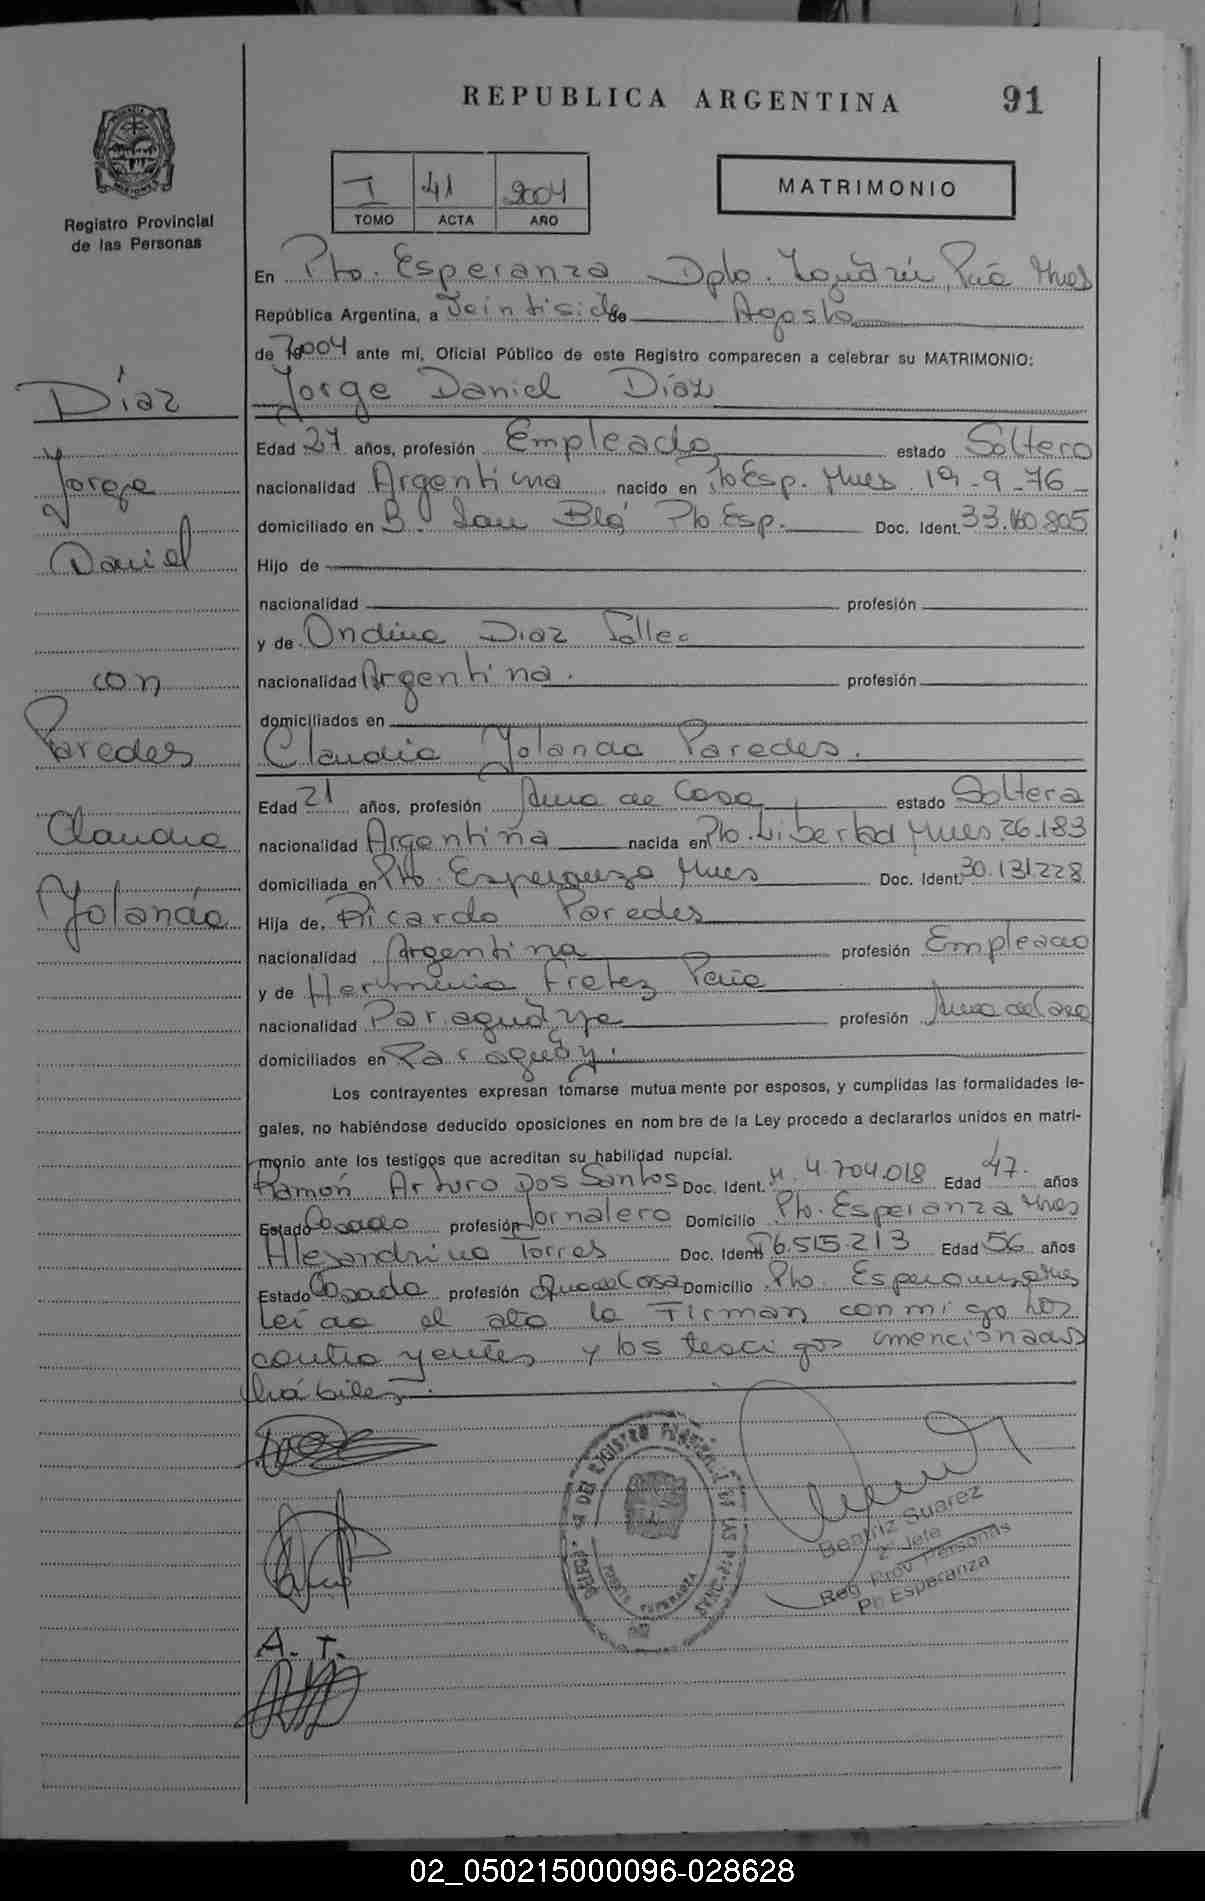 REPUBLICA ARGENTINA 91
Registro Provincial
de las Personas
I 41 2004
TOMO ACTA AÑO
MATRIMONIO
En Pto. Esperanza Dpto. Iguazú Mnes
República Argentina, a Veintisiete de Agosto
de 2004 ante mí, Oficial Público de este Registro comparecen a celebrar su MATRIMONIO:
Jorge Daniel Díaz
Edad 27 años, profesión Empleado estado Soltero
nacionalidad Argentina nacido en Pto Esp. Mnes 19-9-76
domiciliado en B. Pto Esp. Doc. Ident. 33.160.805
Hijo de
nacionalidad profesión
y de Ondina Diaz
nacionalidad Argentina. profesión
domiciliados en
Claudia Yolanda Paredes.
Edad 21 años, profesión Ama de Casa estado Soltera
nacionalidad Argentina nacida en Pto. Libertad Mnes 26.1.83
domiciliada en Pto. Esperanza Mnes Doc. Ident. 30.131.228
Hija de Ricardo Paredes
nacionalidad Argentina profesión Empleado
y de Herminia Fretez
nacionalidad Paraguaya profesión Ama de Casa
domiciliados en Paraguay.
Los contrayentes expresan tomarse mutua mente por esposos, y cumplidas las formalidades le-
gales, no habiéndose deducido oposiciones en nom bre de la Ley procedo a declararlos unidos en matri-
monio ante los testigos que acreditan su habilidad nupcial.
Ramón Arturo Dos Santos Doc. Ident. M. 4.704.018 Edad 47. años
Estado Casado profesión Jornalero Domicilio Pto. Esperanza Mnes
Alejandrina Torres Doc. Ident. 6.515.213 Edad 56 años
Estado Casada profesión Ama de Casa Domicilio Pto. Esperanza Mnes
Leída el acta la Firman conmigo los
contrayentes y los testigos mencionados
hábiles.
Díaz
Jorge
Daniel
con
Paredes
Claudia
Yolanda
A. T.
Beatriz Suarez
2º Jefe
Reg. Prov. Personas
Pto Esperanza
02_050215000096-028628